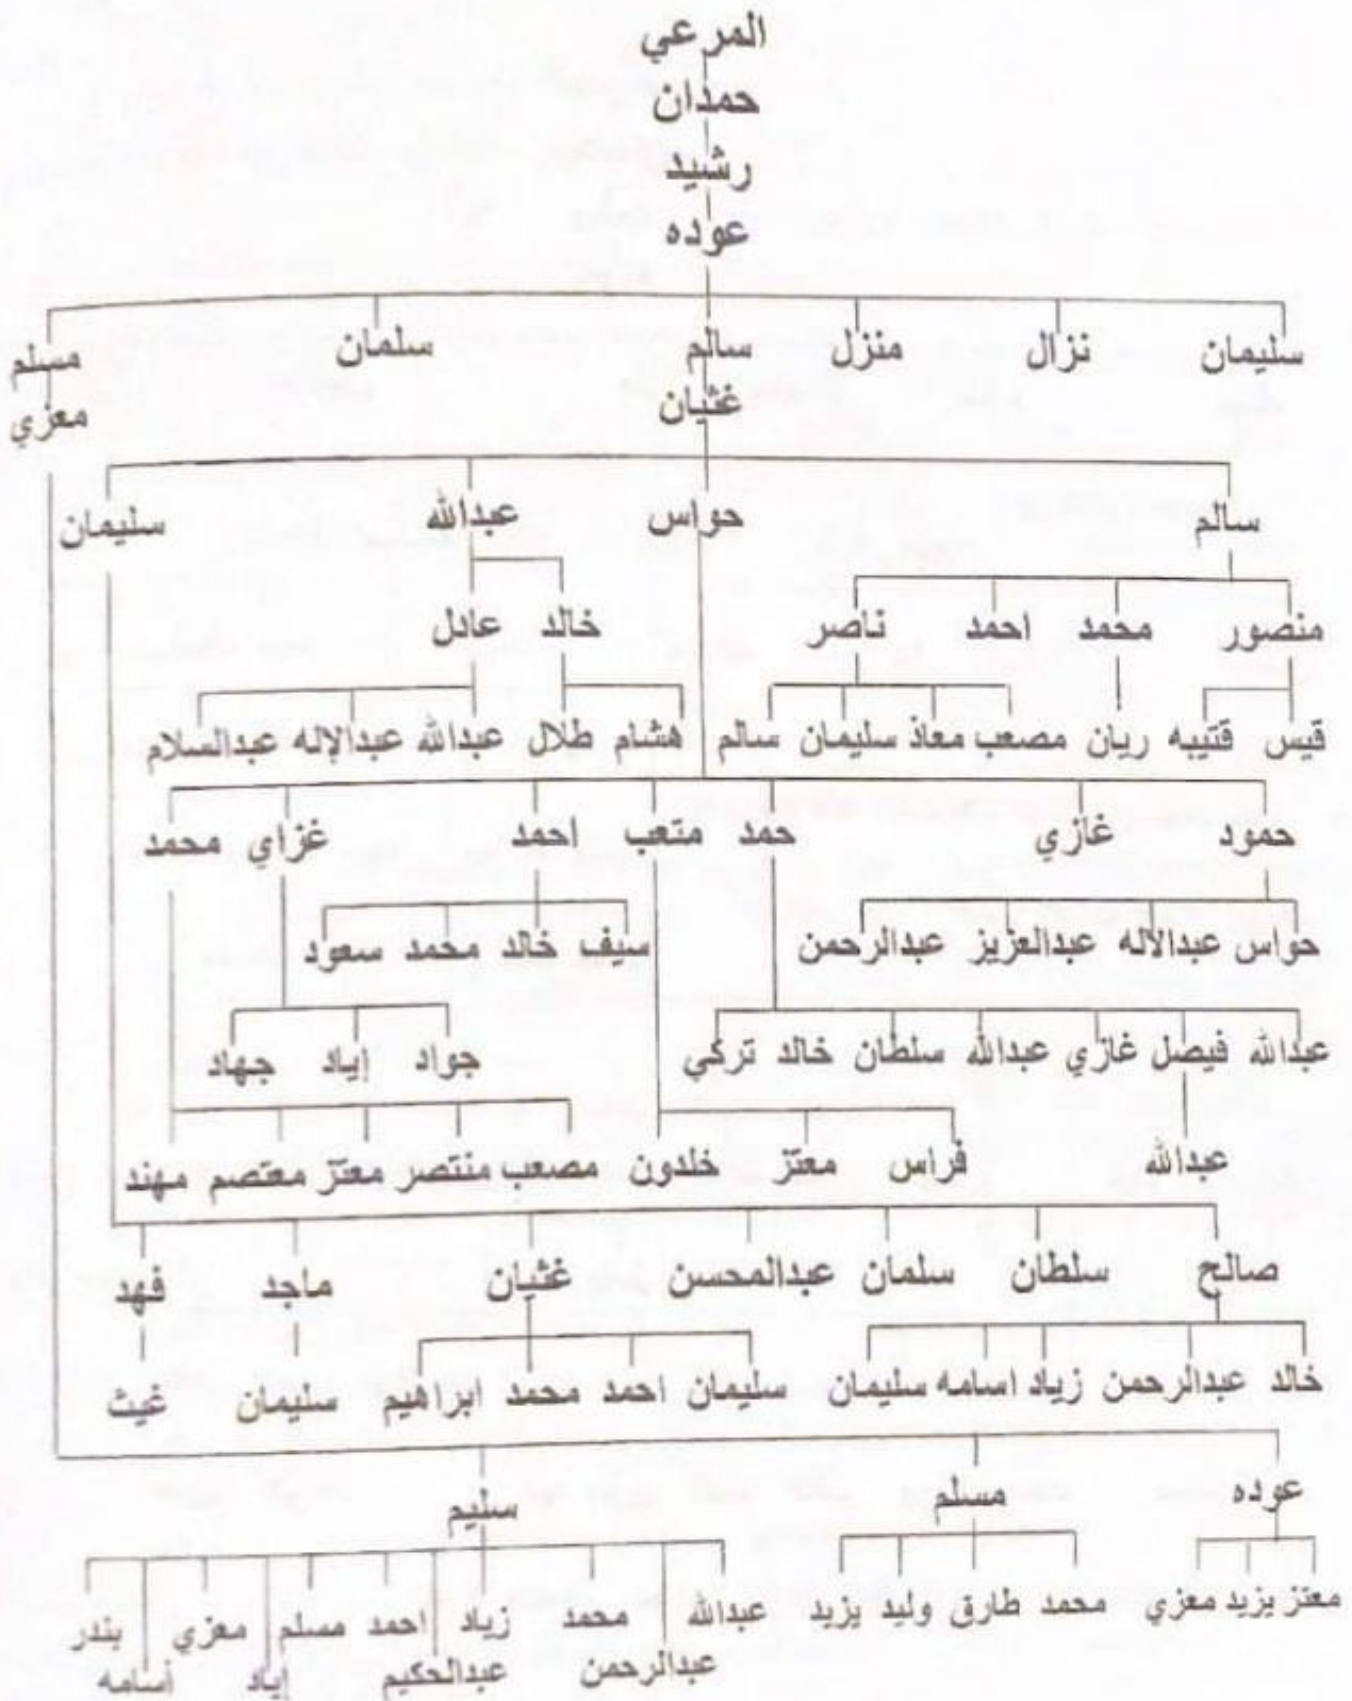 المرعي
حمدان
رشيد
عوده
سليمان نزال منزل سالم سلمان مسلم
غثيان معزي
سالم حواس عبدالله سليمان
منصور محمد احمد ناصر خالد عادل
قيس قتيبه ريان مصعب معاذ سليمان سالم هشام طلال عبدالله عبدالإله عبدالسلام
حمود غازي حمد متعب احمد غزاي محمد
حواس عبدالاله عبدالعزيز عبدالرحمن سيف خالد محمد سعود
عبدالله فيصل غازي عبدالله سلطان خالد تركي جواد إياد جهاد
عبدالله فراس معتز خلدون مصعب منتصر معتز معتصم مهند
صالح سلطان سلمان عبدالمحسن غثيان ماجد فهد
خالد عبدالرحمن زياد اسامه سليمان سليمان احمد محمد ابراهيم سليمان غيث
عوده مسلم سليم
معتز يزيد معزي محمد طارق وليد يزيد عبدالله محمد زياد احمد مسلم معزي بندر
عبدالرحمن عبدالحكيم إياد أسامه